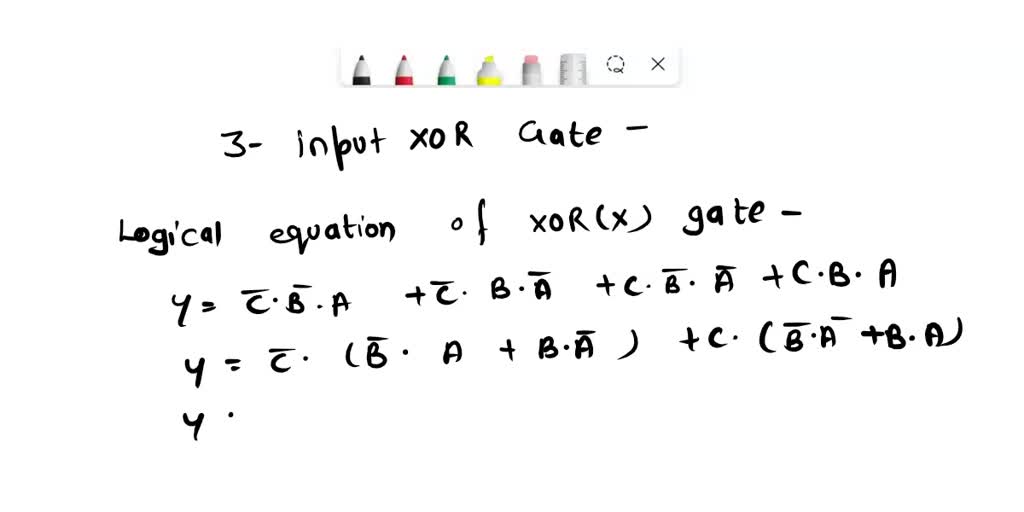 3- input XOR Gate -
Logical equation of XOR(X) gate -
Y = C̅·B̅·A + C̅·B·A̅ + C·B̅·A̅ + C·B·A
Y = C̅·(B̅·A + B·A̅) + C·(B̅·A̅ + B·A)
Y ·